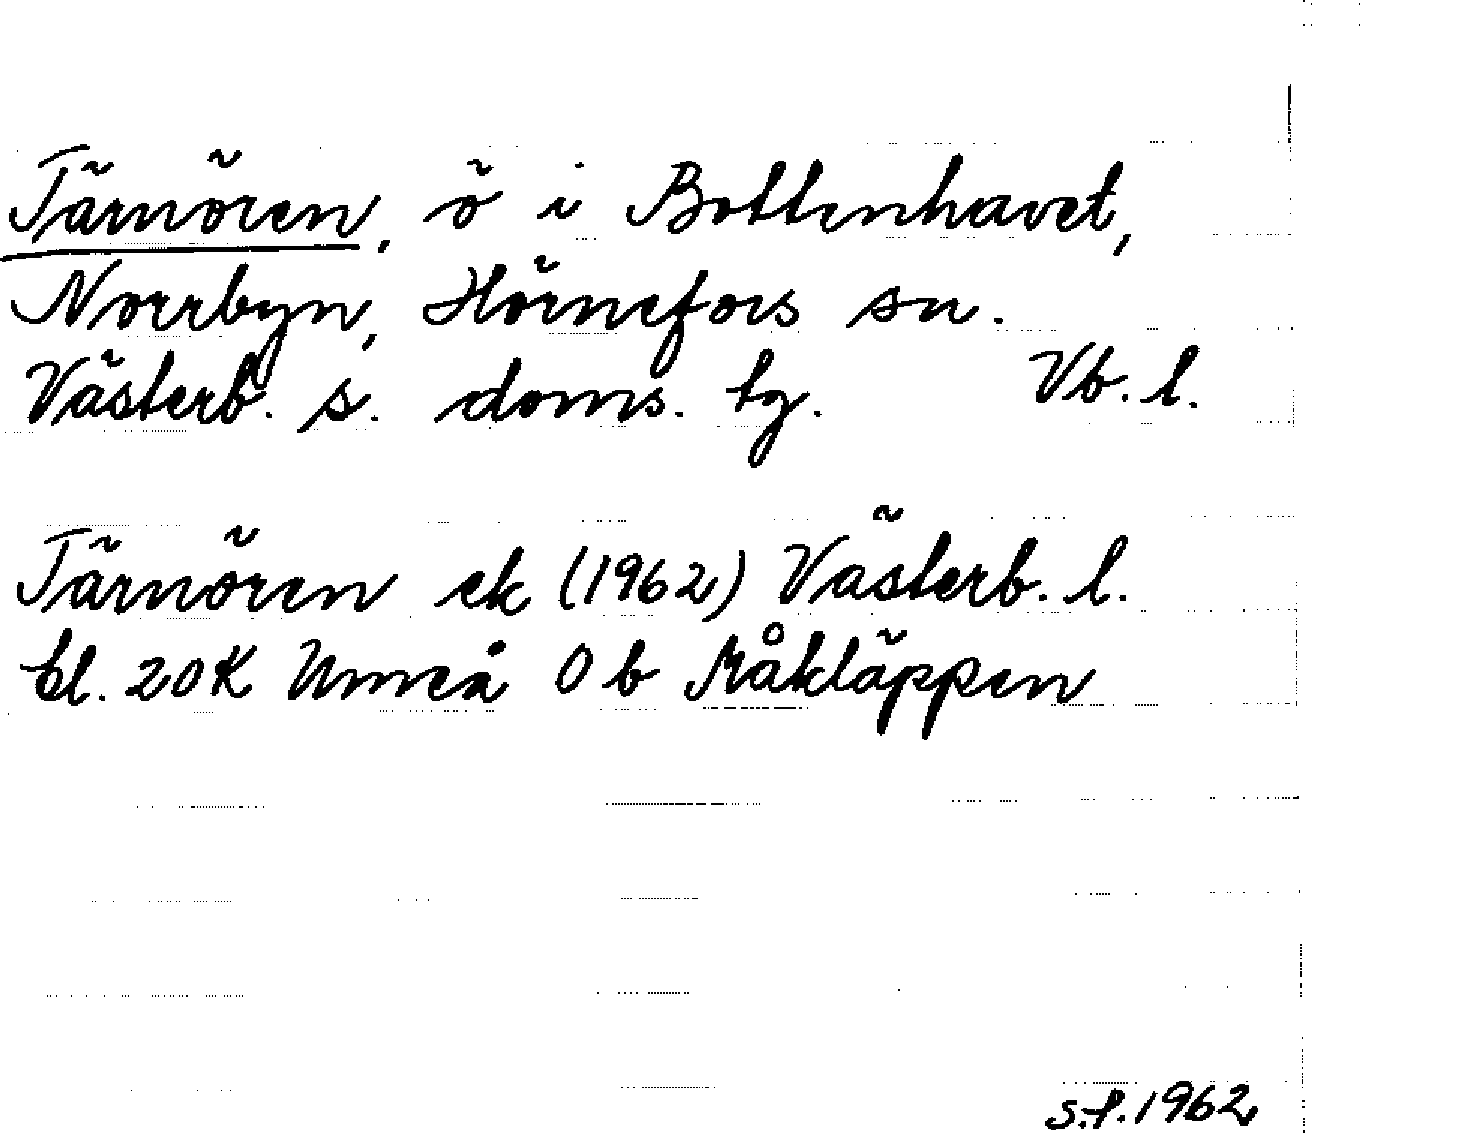 Tärnören, ö i Bottenhavet,
Norrbyn, Hörnefors sn.
Västerb. s. doms. tg. Vb. l.
Tärnören ek (1962) Västerb. l.
bl. 20K Umeå 0 b Måkläppen
s.f. 1962